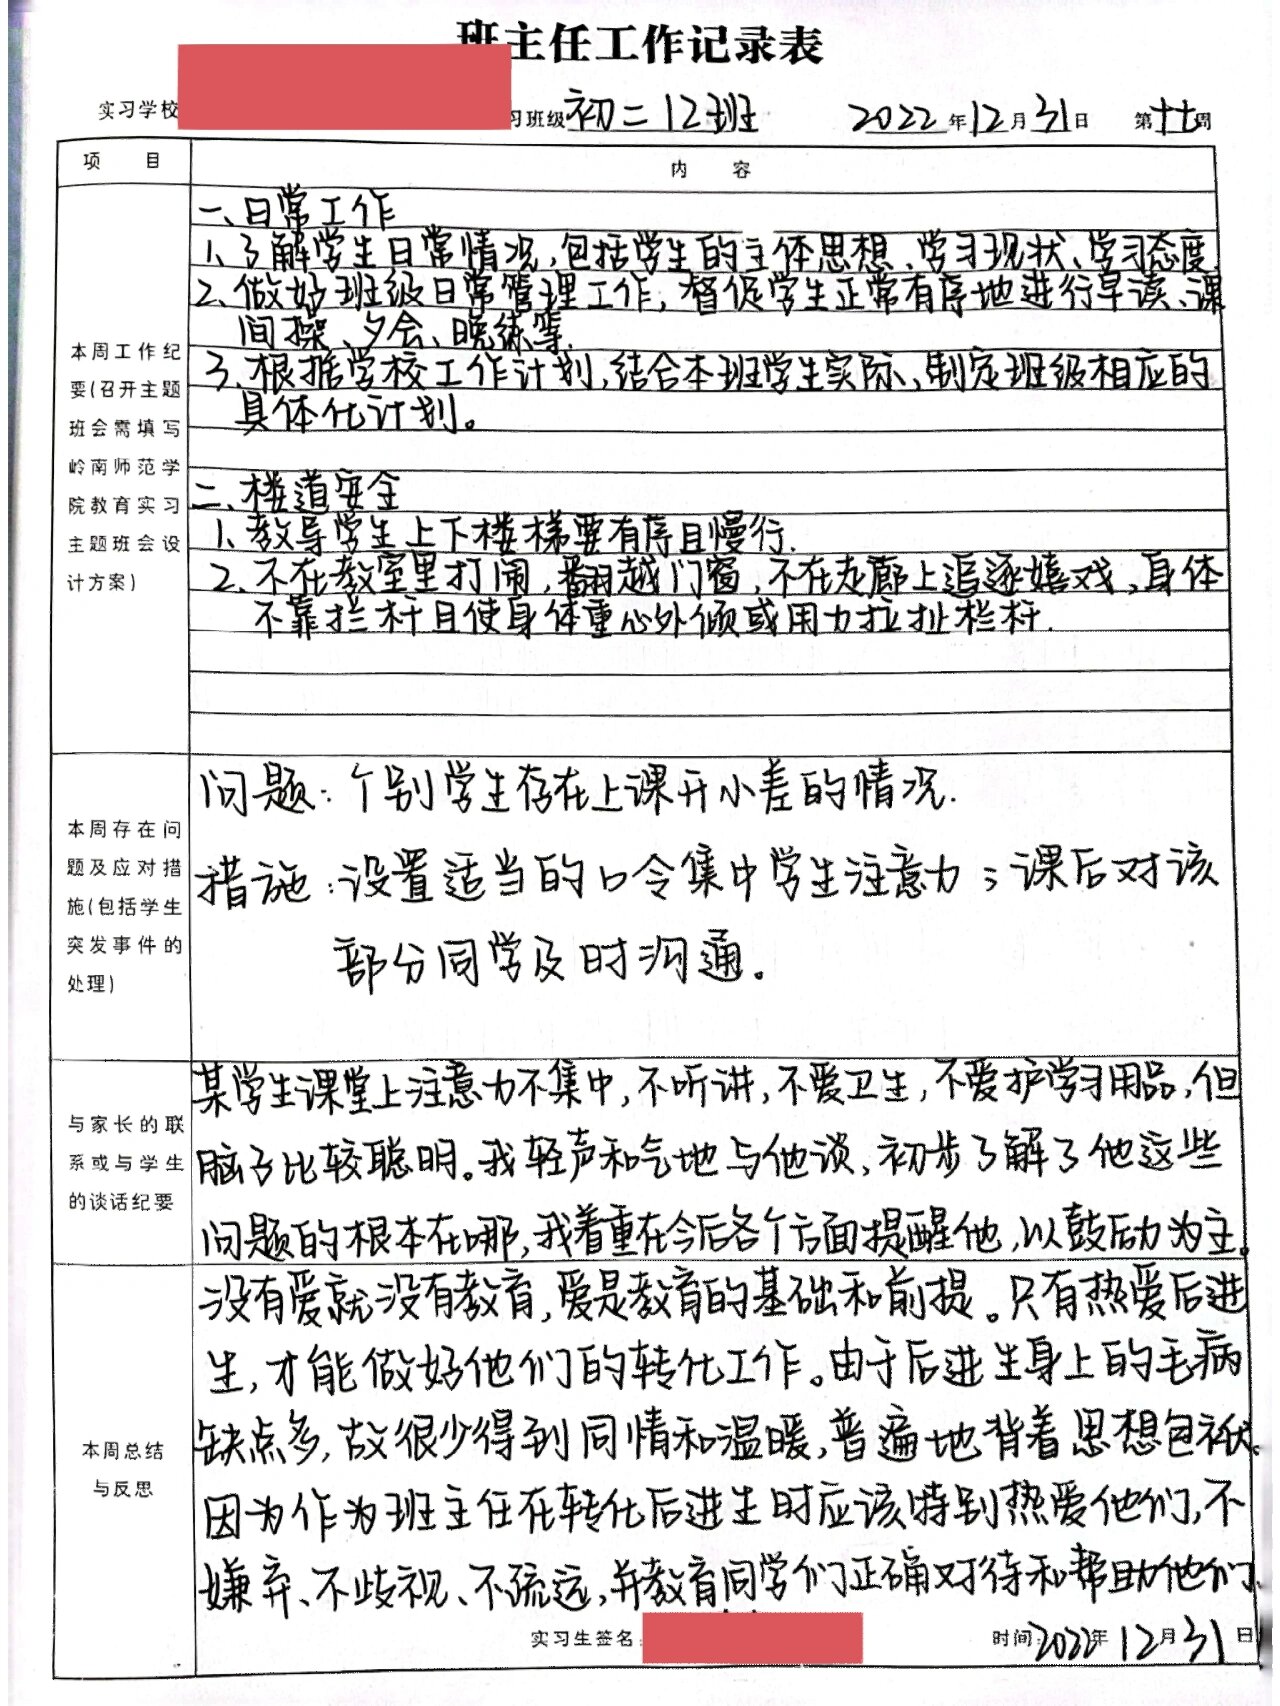 班主任工作记录表
实习学校 习班级 初二12班 2022年12月31日 第十七周
项 目 内 容
本周工作纪
要(召开主题
班会需填写
岭南师范学
院教育实习
主题班会设
计方案)
一、日常工作
1、了解学生日常情况,包括学生的主体思想、学习现状、学习态度
2、做好班级日常管理工作,督促学生正常有序地进行早读、课
间操、夕会、晚练等.
3、根据学校工作计划,结合本班学生实际,制定班级相应的
具体化计划。
二、楼道安全
1、教导学生上下楼梯要有序且慢行.
2、不在教室里打闹,翻越门窗,不在走廊上追逐嬉戏,身体
不靠拦杆且使身体重心外倾或用力拉扯栏杆.
本周存在问
题及应对措
施(包括学生
突发事件的
处理)
问题:个别学生存在上课开小差的情况.
措施:设置适当的口令集中学生注意力;课后对该
部分同学及时沟通。
与家长的联
系或与学生
的谈话纪要
某学生课堂上注意力不集中,不听讲,不爱卫生,不爱护学习用品,但
脑子比较聪明。我轻声和气地与他谈,初步了解了他这些
问题的根本在哪,我着重在今后各个方面提醒他,以鼓励为主。
本周总结
与反思
没有爱就没有教育,爱是教育的基础和前提。只有热爱后进
生,才能做好他们的转化工作。由于后进生身上的毛病
缺点多,故很少得到同情和温暖,普遍地背着思想包袱。
因为作为班主任在转化后进生时应该特别热爱他们,不
嫌弃、不歧视、不疏远,并教育同学们正确对待和帮助他们.
实习生签名: 时间:2022年12月31日